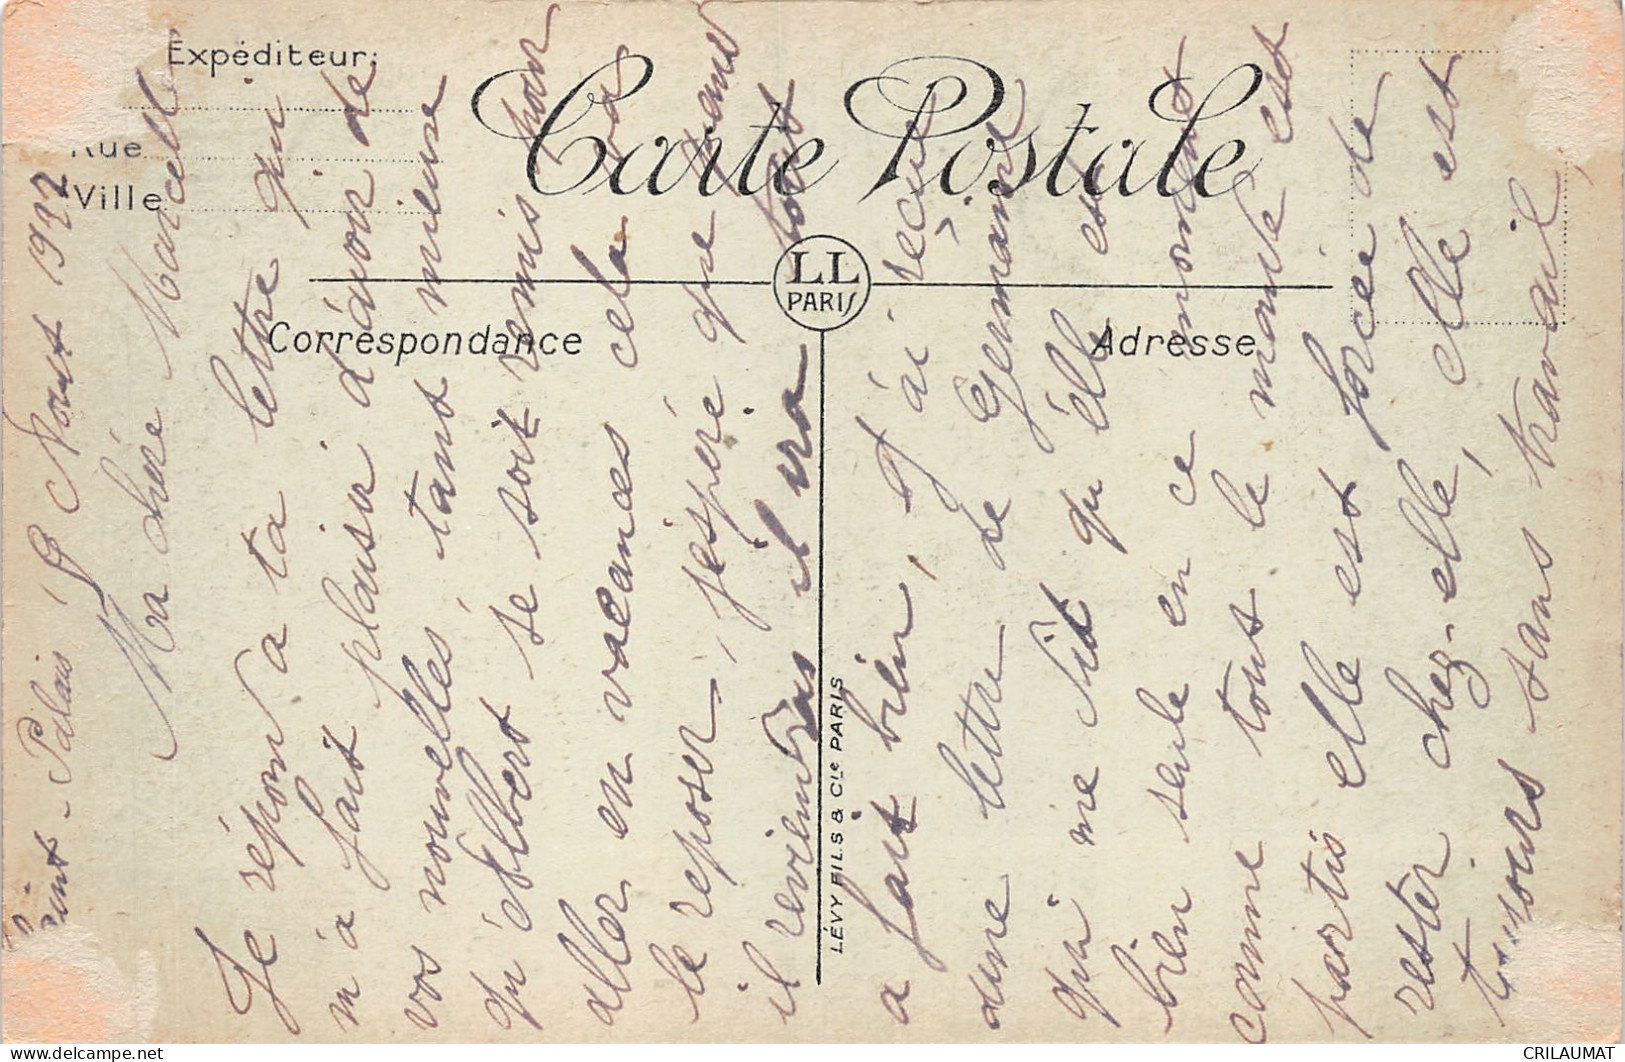 Expéditeur:
Rue
Ville
Carte Postale
LL
PARIS
Correspondance
Adresse
LÉVY FILS & Cie PARIS
Saint-Palais 9 Aout 1922
Ma chère Marcelle
Je répond a ta lettre qui
m'a fait plaisir d'avoir de
vos nouvelles, tant mieux
qu'Albert se soit remis pour
aller en vacances cela va
le reposer, j'espère que quand
il reviendras il vra tout
a fait bien, J'ai recue
une lettre de Germaine
qui me dit qu'elle est
bien seule en ce moment
comme tout le monde est
partis elle est forcé de
rester chez-elle, elle est
toujours sans travail,
CRILAUMAT